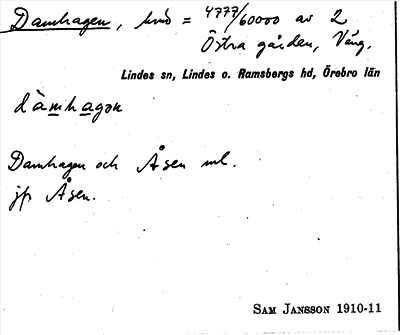 Damhagen, = 4777/60000 av 2
Östra gården, Väng.
Lindes sn, Lindes o. Ramsbergs hd, Örebro län
dàmhagən
Damhagen och Åsen ml.
jfr Åsen.
SAM JANSSON 1910-11